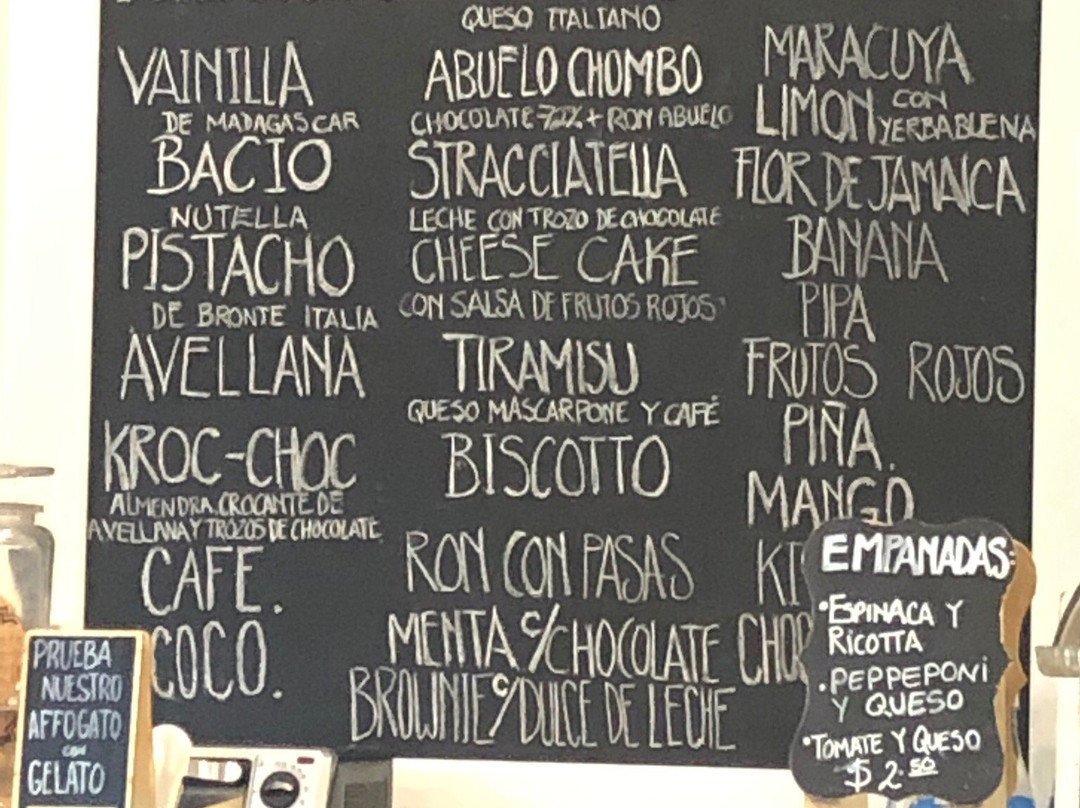 VAINILLA
DE MADAGASCAR
BACIO
NUTELLA
PISTACHO
DE BRONTE ITALIA
AVELLANA
KROC-CHOC
ALMENDRA, CROCANTE DE
AVELLANA Y TROZOS DE CHOCOLATE
CAFE.
COCO.
QUESO ITALIANO
ABUELO CHOMBO
CHOCOLATE 72% + RON ABUELO
STRACCIATELLA
LECHE CON TROZO DE CHOCOLATE
CHEESE CAKE
CON SALSA DE FRUTOS ROJOS
TIRAMISU
QUESO MASCARPONE Y CAFÉ
BISCOTTO
RON CON PASAS
MENTA C/CHOCOLATE
BROWNIE C/DULCE DE LECHE
MARACUYA
LIMON CON
YERBABUENA
FLOR DE JAMAICA
BANANA
PIPA
FRUTOS ROJOS
PIÑA.
MANGO
EMPANADAS:
•ESPINACA Y
RICOTTA
•PEPPEPONI
Y QUESO
•TOMATE Y QUESO
$ 2.50
PRUEBA
NUESTRO
AFFOGATO
con
GELATO